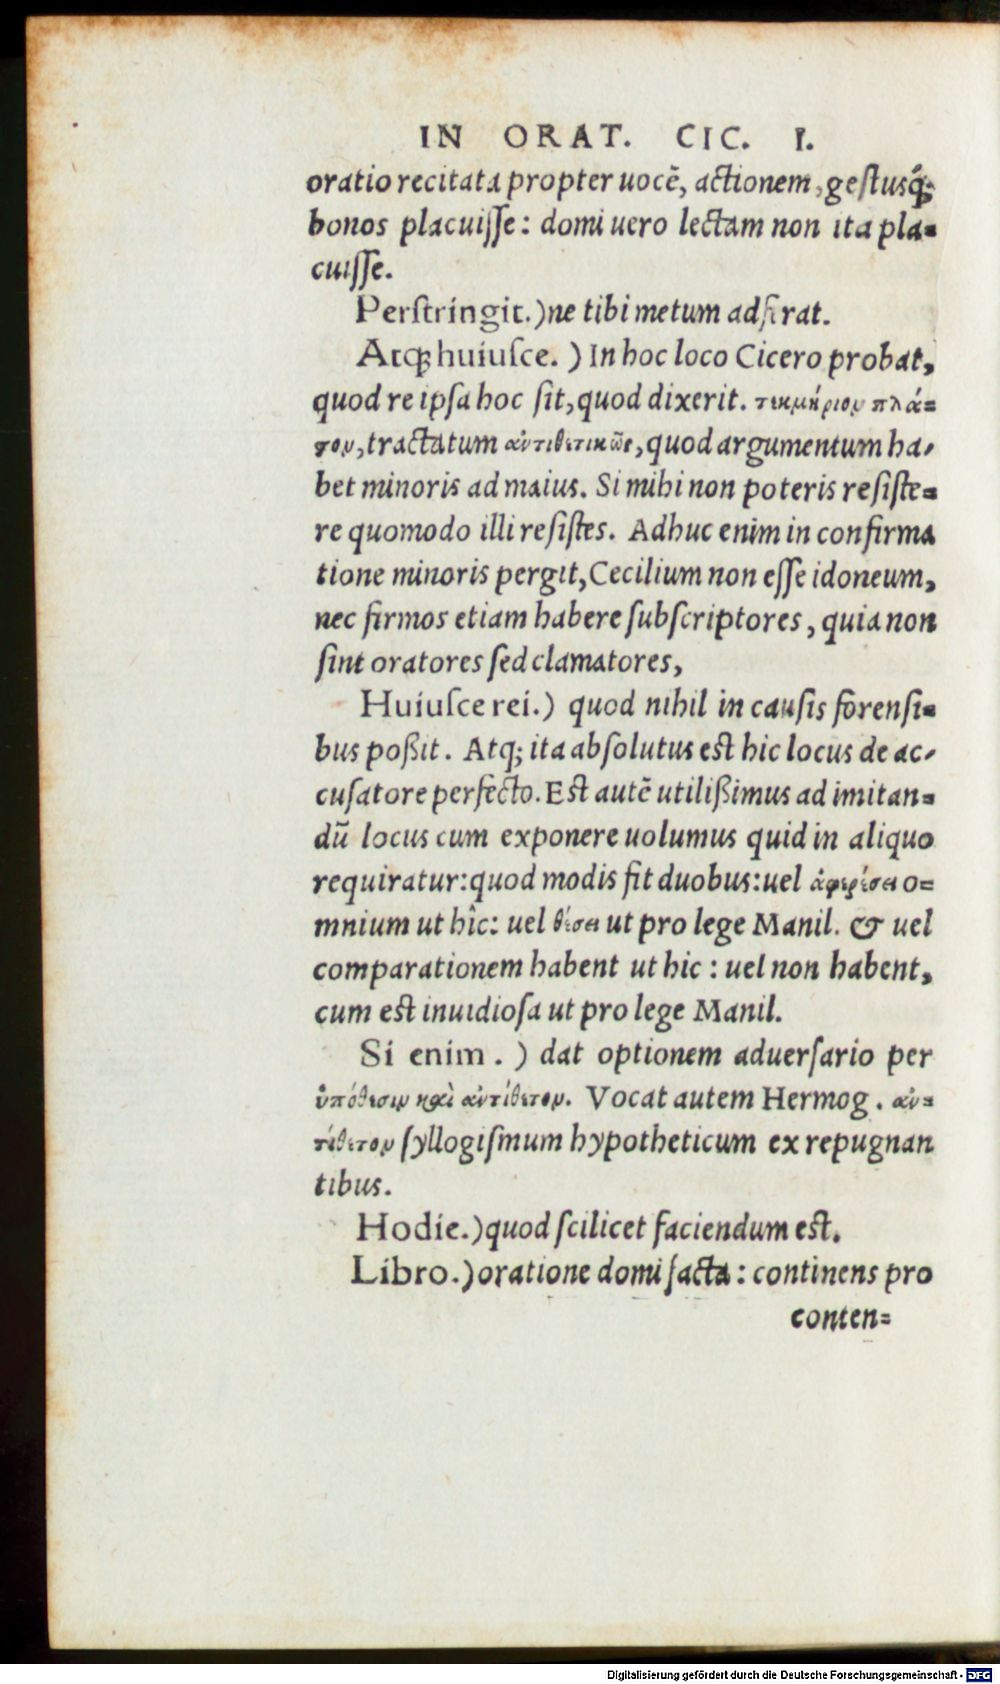 IN ORAT. CIC. I.
oratio recitata propter uocē, actionem, gestusq́;
bonos placuisse: domi uero lectam non ita pla=
cuisse.
Perstringit.) ne tibi metum adferat.
Atq; huiusce. ) In hoc loco Cicero probat,
quod re ipsa hoc sit, quod dixerit. τεκμήριον πλά=
τον, tractatum ἀντιθετικῶς, quod argumentum ha-
bet minoris ad maius. Si mihi non poteris resiste=
re quomodo illi resistes. Adhuc enim in confirma
tione minoris pergit, Cecilium non esse idoneum,
nec firmos etiam habere subscriptores, quia non
sint oratores sed clamatores,
Huiusce rei.) quod nihil in causis forensi=
bus poßit. Atq; ita absolutus est hic locus de ac-
cusatore perfecto. Est autē utilißimus ad imitan=
dū locus cum exponere uolumus quid in aliquo
requiratur: quod modis fit duobus: uel ἀφερέσει o=
mnium ut hîc: uel θέσει ut pro lege Manil. & uel
comparationem habent ut hic: uel non habent,
cum est inuidiosa ut pro lege Manil.
Si enim. ) dat optionem aduersario per
ὑπόθεσιν καὶ ἀντίθετον. Vocat autem Hermog. ἀν=
τίθετον syllogismum hypotheticum ex repugnan
tibus.
Hodie.) quod scilicet faciendum est.
Libro.) oratione domi facta: continens pro
conten=
Digitalisierung gefördert durch die Deutsche Forschungsgemeinschaft - DFG